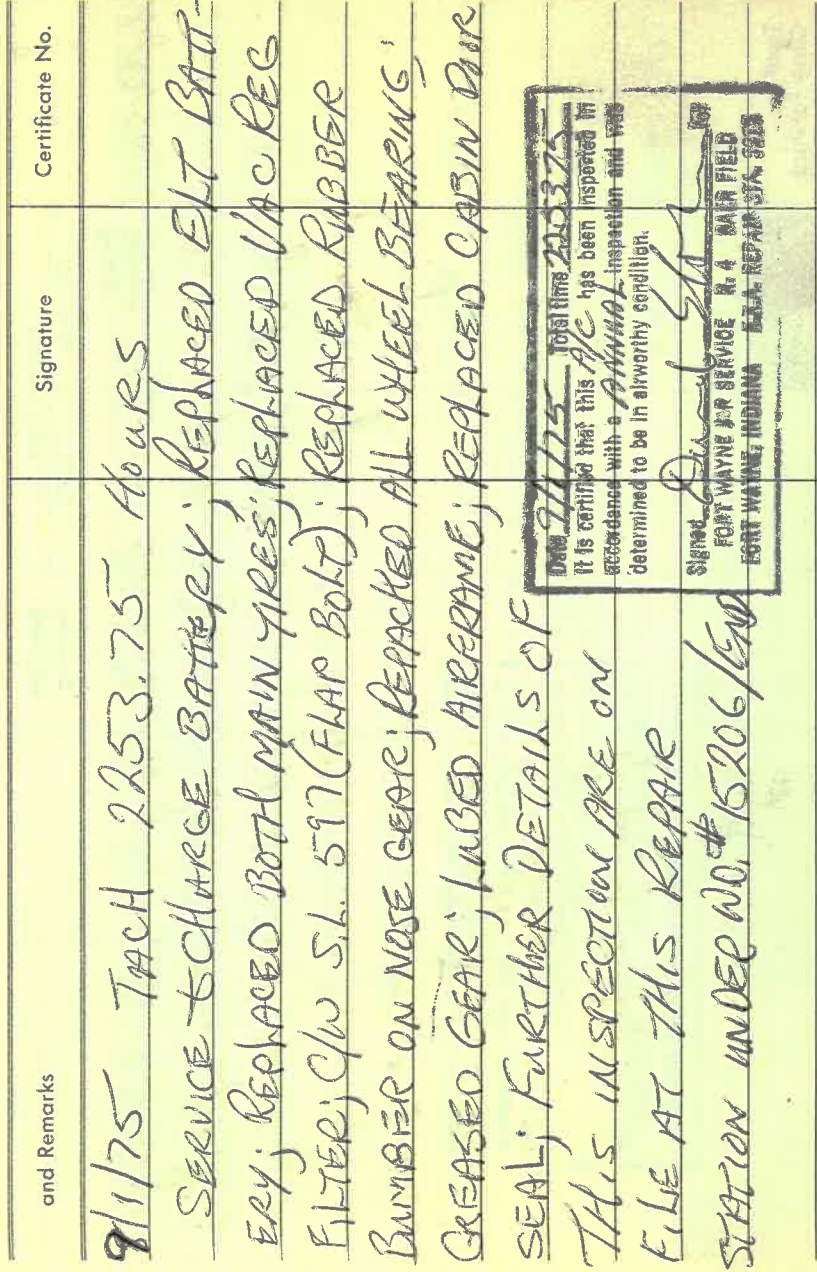 and Remarks Signature Certificate No.
9/1/75 TACH 2253.75 HOURS
SERVICE & CHARGE BATTERY; REPLACED ELT BATT-
ERY; REPLACED BOTH MAIN TIRES; REPLACED VAC REG
FILTER; C/W S.L. 597 (FLAP BOLT); REPLACED RUBBER
BUMBER ON NOSE GEAR; REPACKED ALL WHEEL BEARING;
GREASED GEAR; LUBED AIRFRAME; REPLACED CABIN DOOR
SEAL; FURTHER DETAILS OF
THIS INSPECTION ARE ON
FILE AT THIS REPAIR
STATION UNDER WO.# 15206/END
Date 9/1/75 Total time 2253.75
It is certified that this A/C has been inspected in
accordance with a ANNUAL inspection and was
determined to be in airworthy condition.
Signed for
FORT WAYNE AIR SERVICE R. 4 BAER FIELD
FORT WAYNE, INDIANA F.A.A. REPAIR STA.